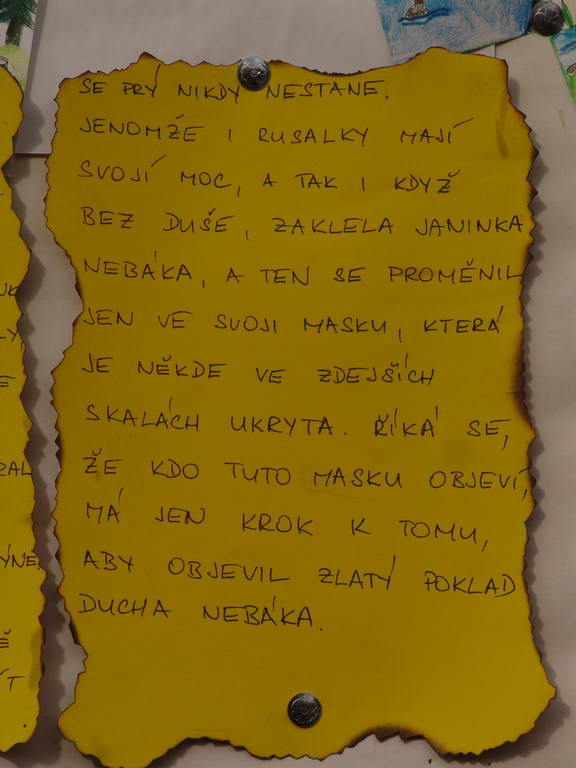 SE PRÝ NIKDY NESTANE.
JENOMŽE I RUSALKY MAJÍ
SVOJÍ MOC, A TAK I KDYŽ
BEZ DUŠE, ZAKLELA JANINKA
NEBÁKA, A TEN SE PROMĚNIL
JEN VE SVOJI MASKU, KTERÁ
JE NĚKDE VE ZDEJŠÍCH
SKALÁCH UKRYTA. ŘÍKÁ SE,
ŽE KDO TUTO MASKU OBJEVÍ,
MÁ JEN KROK K TOMU,
ABY OBJEVIL ZLATÝ POKLAD
DUCHA NEBÁKA.